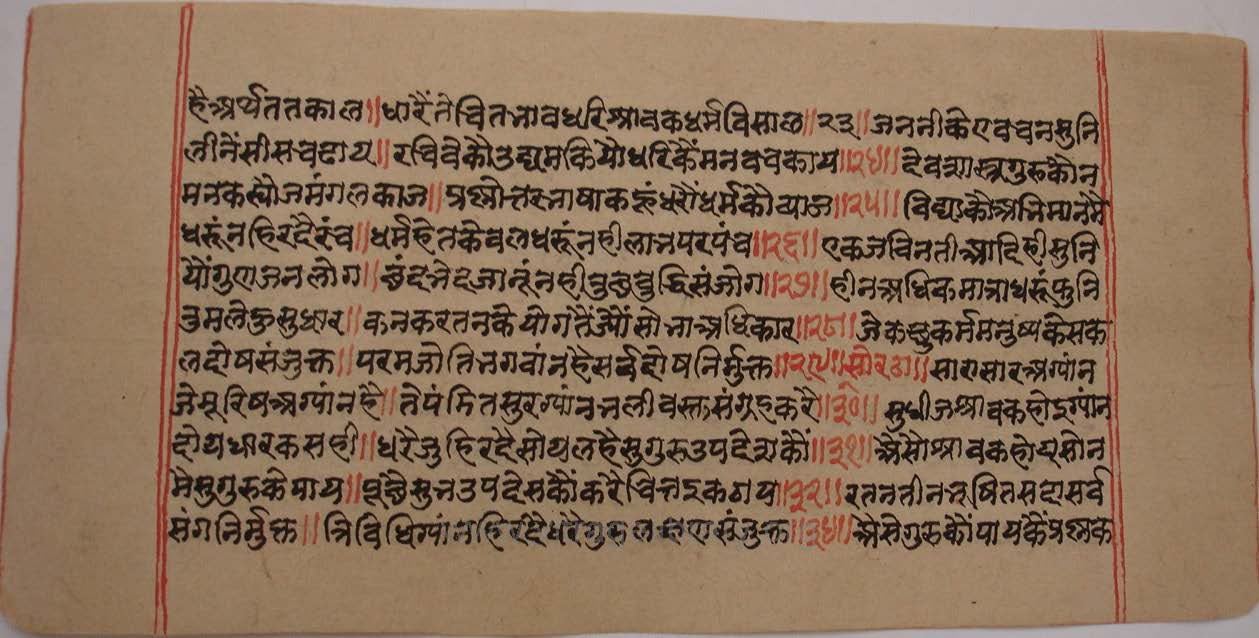 है अर्थ ततकाल॥ धारैं ते चित भाव धरि श्रावक धर्म विसाल॥ २३॥ जननी के ए वचन सुनि
लीनैं सीस चढाय॥ रचिवे कौ उद्यम कियो धरि कैं मन वच काय॥ २४॥ देव शास्त्र गुरु कौ न
म न कस्यो ज मंगल काज॥ प्रश्नोत्तर भाषा कहूं धरौं धर्म कौ व्याज॥ २५॥ विद्या कौ अभिमान मै
धरूं न हिरदै रंच॥ धर्म हेत केवल धरूं नही लाभ परपंच॥ २६॥ एक ज विनती आदि ही सुनि
यौं गुण जन लोग॥ छंद भेद जानूं नही तुछ बुद्धि संजोग॥ २७॥ हीन अधिक मात्रा धरूं फुनि
तुम लेकु सुधार॥ कनक रतन के योग तैं ज्यौं सोभा अधिकार॥ २८॥ जे कछु कर्म मनुष्य के सक
ल दोष संजुक्त॥ परम जोति भगवांन है सर्व दोष निर्मुक्त॥ २९॥ सोरठा॥ सारासार अग्यांन
जे मूरिष अग्यांन है॥ ते पंडित सुरग्यांन भली वस्त संग्रह करै॥ ३०॥ सुधी ज श्रावक होइ ग्यांन
दोय धारक सही॥ धरै जु हिरदै सोय लहै सुगुरु उपदेश कौं॥ ३१॥ अैसो श्रावक होय सो न
मे सुगुरु के पाय॥ पूछै सुभ उपदेस कौं करे चित्त इक ठाय॥ ३२॥ रतन तीन भूषित सदा सर्व
संग निर्मुक्त॥ त्रिविधि ग्यांन हिरदै धरै गुरु लक्षण संजुक्त॥ ३४॥ अैसे गुरु कौं पाय कैं प्रश्न क